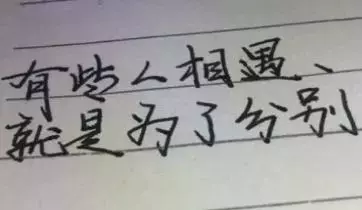 有些人相遇、
就是为了分别